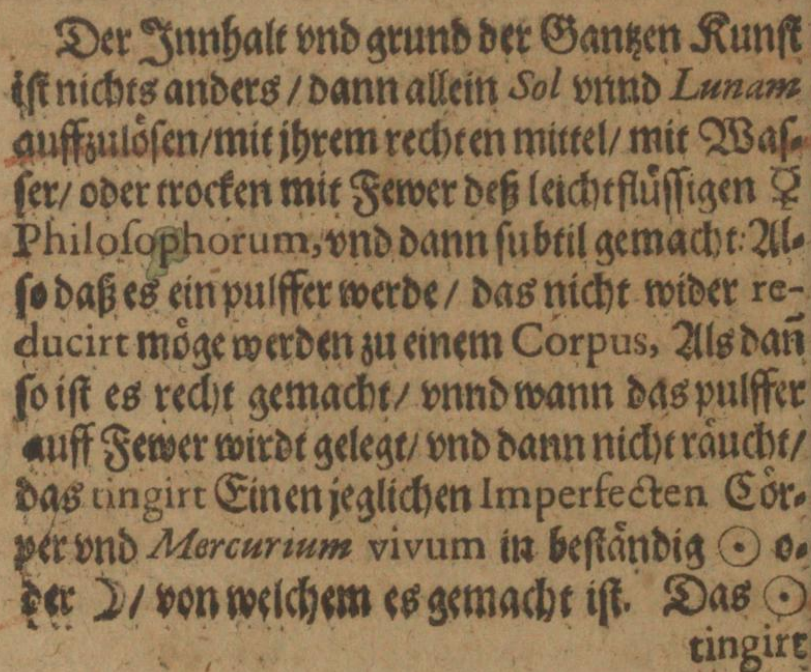 Der Innhalt vnd grund der Gantzen Kunst
ist nichts anders / dann allein Sol vnnd Lunam
auffzulösen/mit jhrem rechten mittel/ mit Was-
ser/ oder trocken mit Fewer deß leichtflüssigen ☿
Philosophorum, vnd dann subtil gemacht: Al-
so daß es ein pulffer werde / das nicht wider re-
ducirt möge werden zu einem Corpus, Als dañ
so ist es recht gemacht/ vnnd wann das pulffer
auff Fewer wirdt gelegt/ vnd dann nicht räucht/
das tingirt Einen jeglichen Imperfecten Cör-
per vnd Mercurium vivum in beständig ☉ o-
der ☽/ von welchem es gemacht ist. Das ☉
tingirt